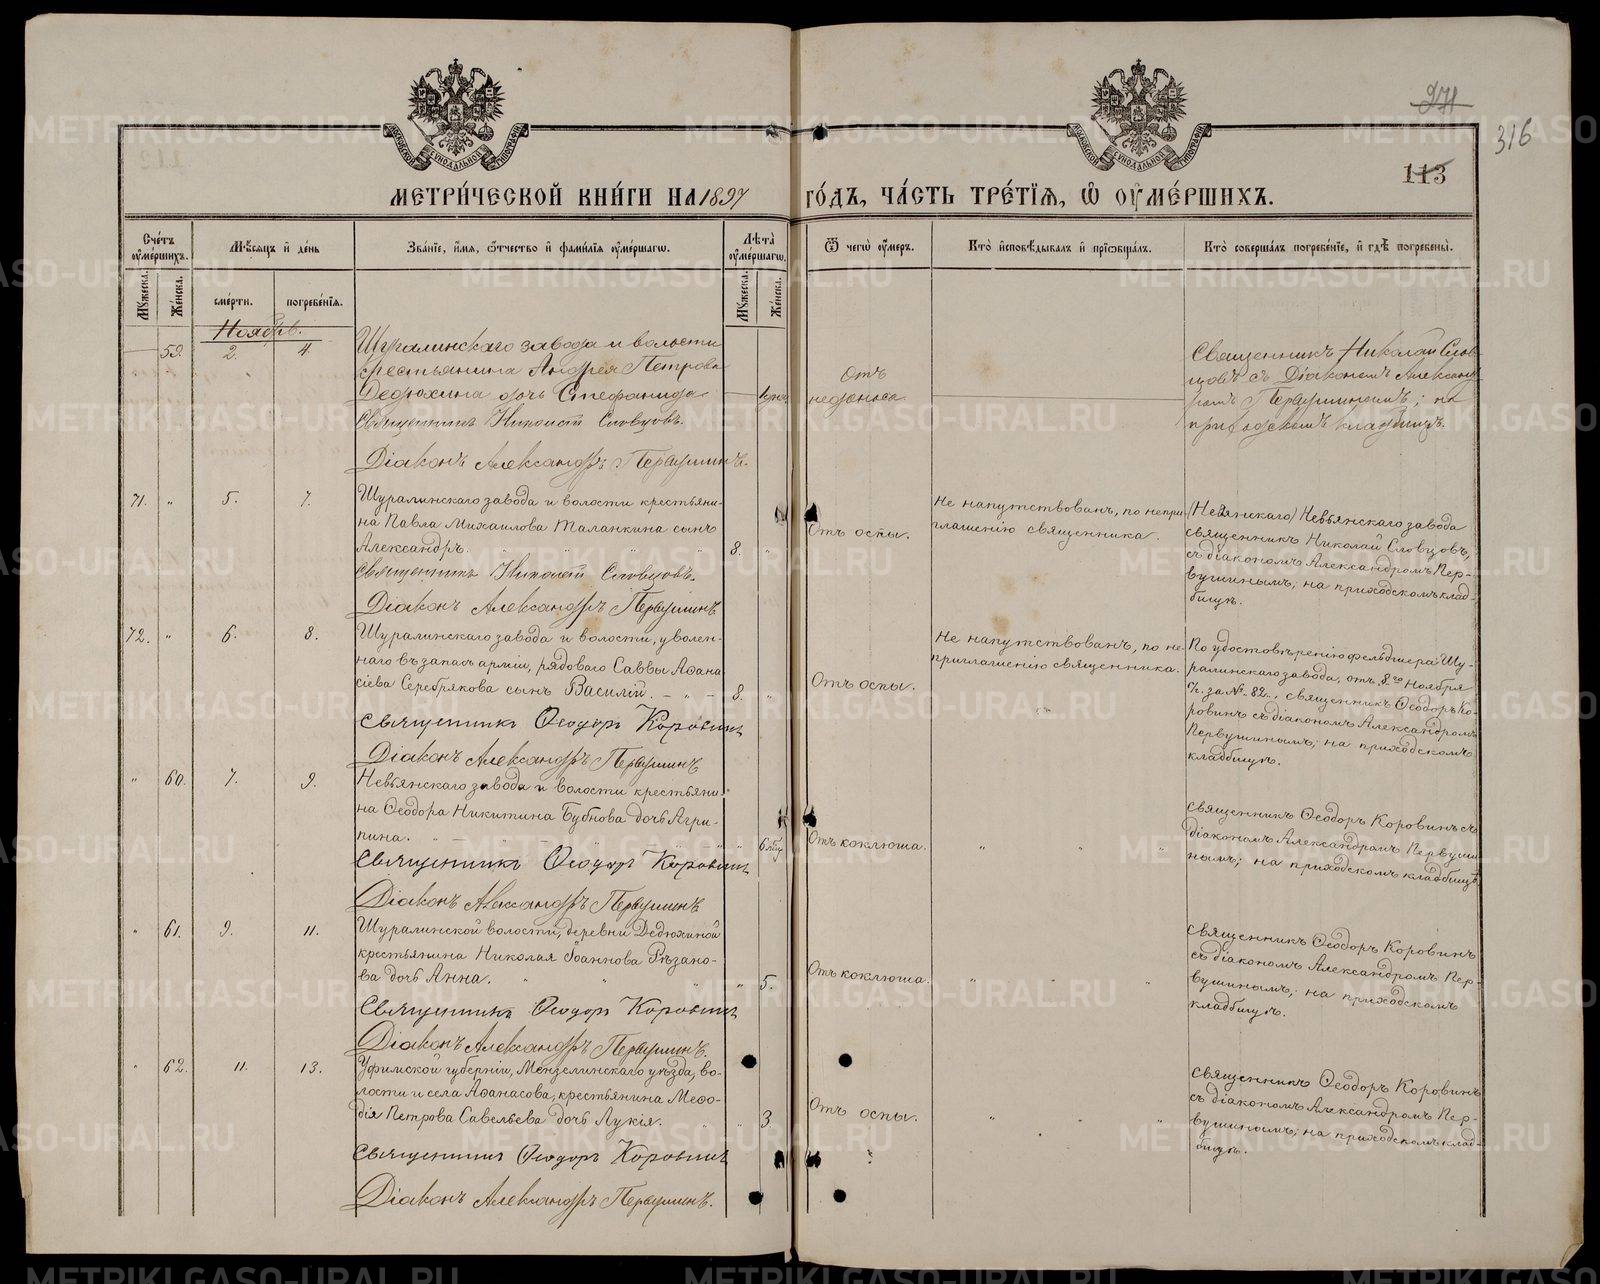 271
316
113
МОСКОВСКОЙ СѴНОДАЛЬНОЙ ТИПОГРАФІИ
МОСКОВСКОЙ СѴНОДАЛЬНОЙ ТИПОГРАФІИ
МЕТРИ́ЧЕСКОЙ КНИ́ГИ НА 1897 ГО́ДЪ, ЧА́СТЬ ТРЕ́ТІЯ, Ѿ ОУМЕ́РШИХЪ.
Сче́тъ оуме́ршихъ.
Мѣ́сяцъ и де́нь
Зва́ніе, и́мя, ѻ҆́тчество и фами́лія оуме́ршагѡ.
Лѣ́та оуме́ршагѡ.
Ѿ чегѡ̀ оу́меръ.
Кто̀ и҆сповѣ́дывалъ и прїѡбща́лъ.
Кто̀ соверша́лъ погребе́ніе, и гдѣ̀ погребены̀.
Му́жеска.
Же́нска.
сме́рти.
погребе́нїя.
Му́жеска.
Же́нска.
Ноябрь.
59.
2.
4.
Шуралинскаго завода и волости
крестьянина Андрея Петрова
Дедюхина дочь Стефанида
Священникъ Николай Словцовъ.
Діаконъ Александръ Первушинъ.
Отъ
недоноса
Священникъ Николай Слов-
цовъ съ Діакономъ Александ
ромъ Первушинымъ; на
приходскомъ кладбищѣ.
71.
"
5.
7.
Шуралинскаго завода и волости крестьяни-
на Павла Михаилова Таланкина сынъ
Александръ.
8.
"
Священникъ Николай Словцовъ.
Діаконъ Александръ Первушинъ
Отъ оспы.
Не напутствованъ, по непри-
глашенію священника.
Невьянскаго завода
священникъ Николай Словцовъ,
съ діакономъ Александромъ Пер-
вушинымъ; на приходскомъ клад-
бищѣ.
72.
"
6.
8.
Шуралинскаго завода и волости, уволен-
наго въ запасъ арміи, рядоваго Саввы Аѳана
сіева Серебрякова сынъ Василій.
8.
"
Священникъ Ѳеодоръ Коровинъ
Діаконъ Александръ Первушинъ
Отъ оспы.
Не напутствованъ, по не-
приглашенію священника.
По удостовѣренію фельдшера Шу-
ралинскаго завода, отъ 8го Ноября
с/г. за № 82., священникъ Ѳеодоръ Ко-
ровинъ съ діакономъ Александромъ
Первушинымъ; на приходскомъ
кладбищѣ.
"
60.
7.
9.
Невьянскаго завода и волости крестьяни-
на Ѳеодора Никитина Бубнова дочь Агри-
пина.
Священникъ Ѳеодоръ Коровинъ
Діаконъ Александръ Первушинъ
Отъ коклюша.
"
Священникъ Ѳеодоръ Коровинъ съ
діакономъ Александромъ Первуши
нымъ; на приходскомъ кладбищѣ
"
61.
9.
11.
Шуралинской волости, деревни Дедюхиной
крестьянина Николая Іоаннова Рѣзано-
ва дочь Анна.
"
5.
Священникъ Ѳеодоръ Коровинъ
Діаконъ Александръ Первушинъ.
Отъ коклюша.
"
Священникъ Ѳеодоръ Коровинъ
съ діакономъ Александромъ Пер-
вушинымъ; на приходскомъ
кладбищѣ.
"
62.
11.
13.
Уфимской губерніи, Мензелинскаго уѣзда, во-
лости и села Аѳанасова, крестьянина Меѳо-
дія Петрова Савельева дочь Лукія.
"
3.
Священникъ Ѳеодоръ Коровинъ
Діаконъ Александръ Первушинъ.
Отъ оспы.
"
Священникъ Ѳеодоръ Коровинъ
съ діакономъ Александромъ Пер-
вушинымъ; на приходскомъ клад-
бищѣ.
METRIKI.GASO-URAL.RU